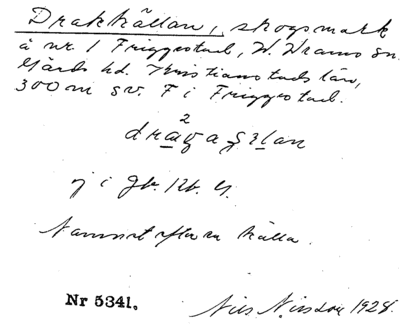 Drakkällan, skogsmark
å nr. 1 Friggestad, W. Wrams sn.
Gärds hd. Kristianstads län,
300 m sv. F i Friggestad.
2
ej i Jb. Kb. G.
Namnet efter en källa.
Nr 5341.
Nils Nilsson 1928.